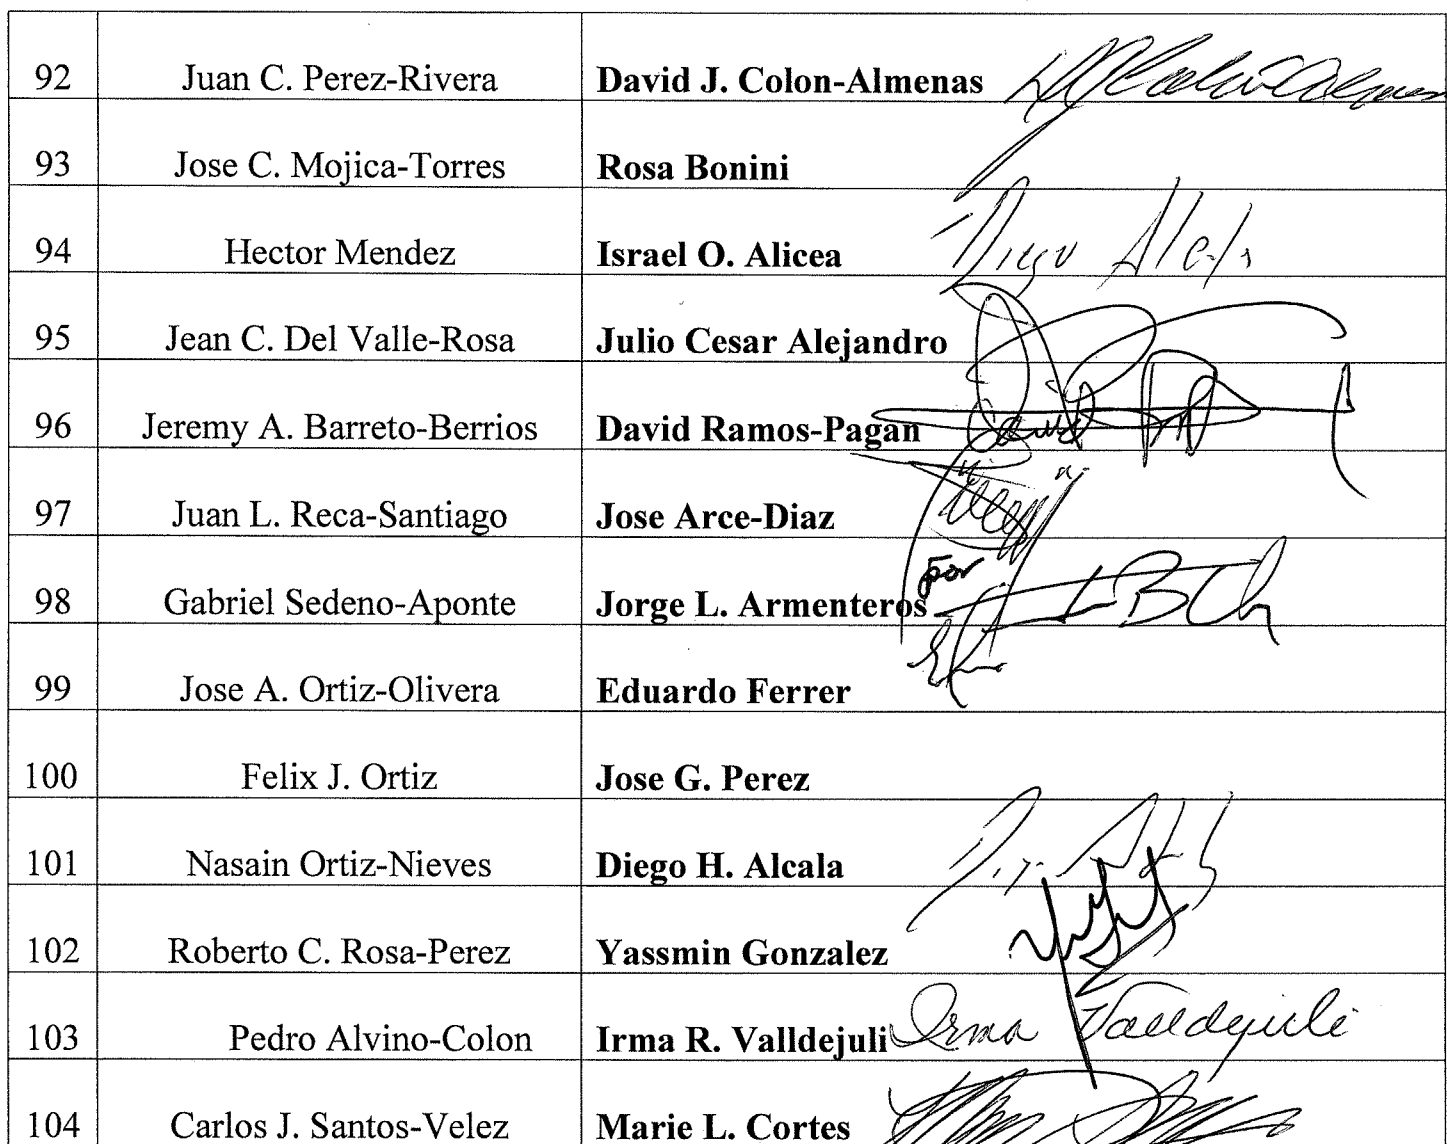 92 Juan C. Perez-Rivera David J. Colon-Almenas
93 Jose C. Mojica-Torres Rosa Bonini
94 Hector Mendez Israel O. Alicea Diego
95 Jean C. Del Valle-Rosa Julio Cesar Alejandro
96 Jeremy A. Barreto-Berrios David Ramos-Pagan David
97 Juan L. Reca-Santiago Jose Arce-Diaz
98 Gabriel Sedeno-Aponte Jorge L. Armenteros por
99 Jose A. Ortiz-Olivera Eduardo Ferrer
100 Felix J. Ortiz Jose G. Perez
101 Nasain Ortiz-Nieves Diego H. Alcala
102 Roberto C. Rosa-Perez Yassmin Gonzalez
103 Pedro Alvino-Colon Irma R. Valldejuli Irma Valldejuli
104 Carlos J. Santos-Velez Marie L. Cortes